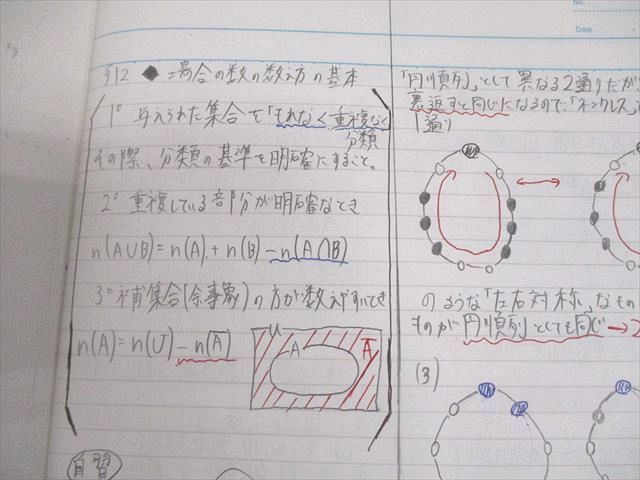 No.
Date
§12 ◆ 場合の数の数え方の基本
1° 与えられた集合を「もれなく重複なく
分類
その際、分類の基準を明確にすること。
2° 重複している部分が明確なとき
n(A∪B)=n(A)+n(B)-n(A∩B)
3° 補集合(余事象)の方が数えやすいとき
n(A)=n(U)-n(A̅)
U
A
A̅
自習
「円順列」として異なる2通りだが
裏返すと同じになるので、「ネックレス」
1通り
のような「左右対称」なもの
ものが円順列としても同じ→2
(3)